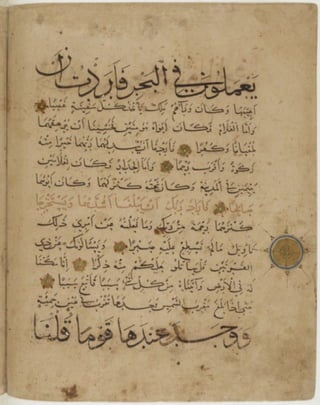 يعملون في البحر فأردت أن
أعيبها وكان وراءهم ملك يأخذ كل سفينة غصبا
وأما الغلام فكان أبواه مؤمنين فخشينا أن يرهقهما
طغيانا وكفرا فأردنا أن يبدلهما ربهما خيرا منه
زكوة وأقرب رحما وأما الجدار فكان لغلامين
يتيمين في المدينة وكان تحته كنز لهما وكان أبوهما
صالحا فأراد ربك أن يبلغا أشدهما ويستخرجا
كنزهما رحمة من ربك وما فعلته عن أمري ذلك
تأويل ما لم تسطع عليه صبرا ويسئلونك عن ذي
القرنين قل سأتلو عليكم منه ذكرا إنا مكنا
له في الأرض وآتيناه من كل شيء سببا فأتبع سببا
حتى إذا بلغ مغرب الشمس وجدها تغرب في عين حمئة
ووجد عندها قوما قلنا